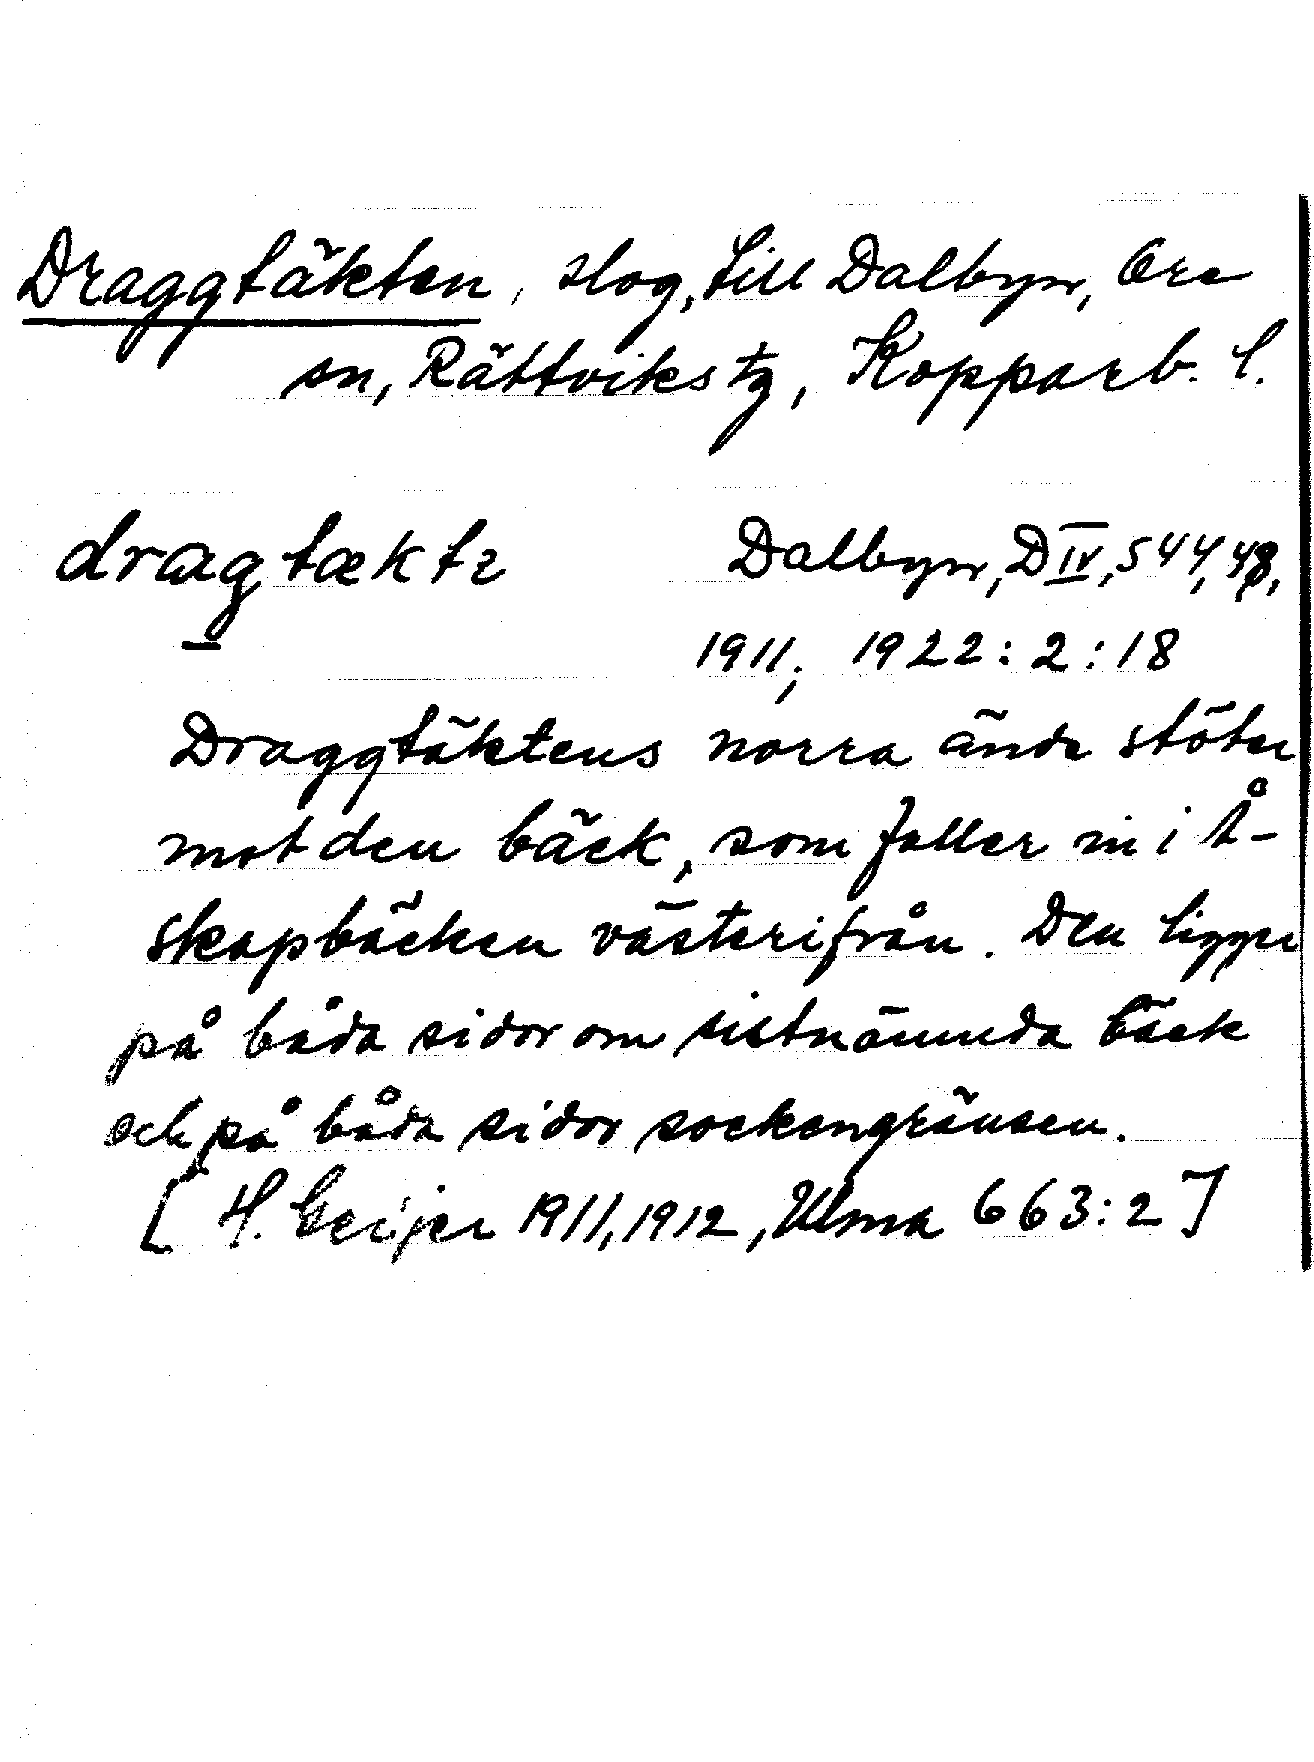 Draggtäkten, slog, till Dalbyn, Ore
sn, Rättviks tg, Kopparb. l.
dragtæktɐ Dalbyn, D IV, 544, 48,
1911, 1922:2:18
Draggtäktens norra ände stöter
mot den bäck, som faller in i Å-
skapbäcken västerifrån. Den ligger
på båda sidor om sistnämnda bäck
och på båda sidor sockengränsen.
[H. Geijer 1911, 1912, Ulma 663:2]